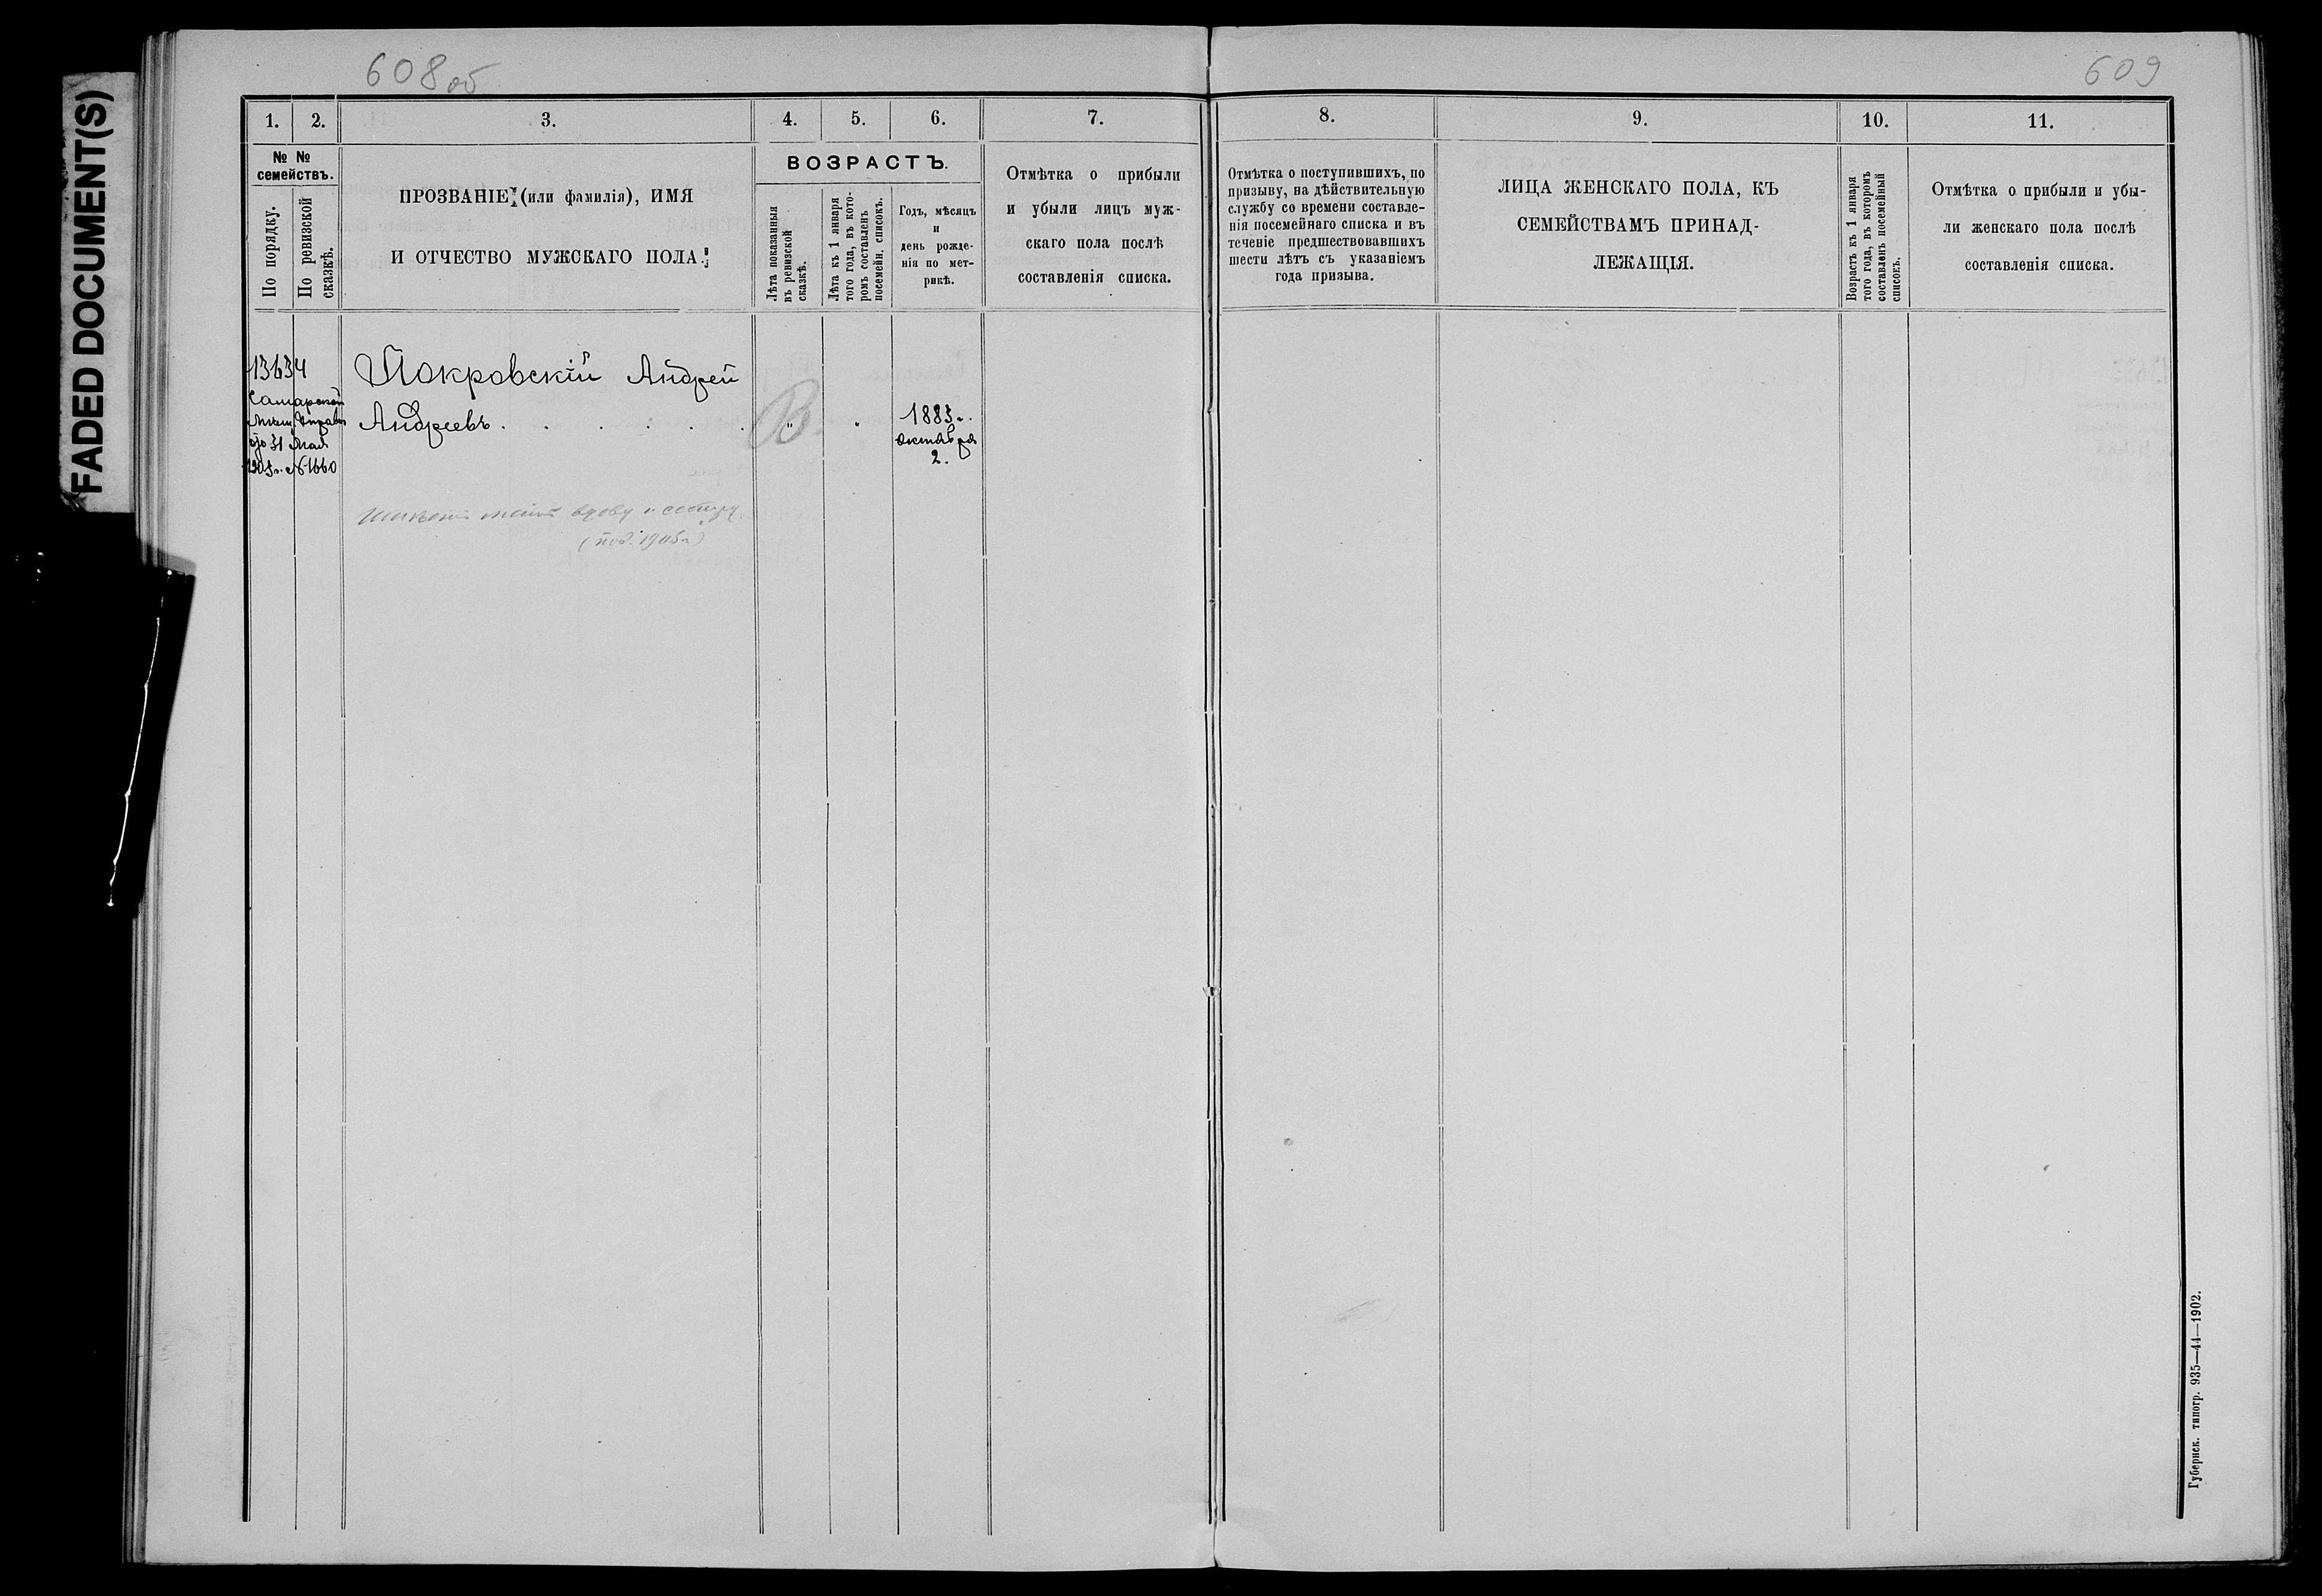 FADED DOCUMENT(S)
608 об
609
1.
2.
3.
4.
5.
6.
7.
8.
9.
10.
11.
№ №
семействъ.
По порядку.
По ревизской
сказкѣ.
ПРОЗВАНІЕ (или фамилія), ИМЯ
И ОТЧЕСТВО МУЖСКАГО ПОЛА.
ВОЗРАСТЪ.
Лѣта показанныя
въ ревизской
сказкѣ.
Лѣта къ 1 января
того года, въ кото-
ромъ составленъ
посемейн. списокъ.
Годъ, мѣсяцъ
и
день рожде-
нія по мет-
рикѣ.
Отмѣтка о прибыли
и убыли лицъ муж-
скаго пола послѣ
составленія списка.
Отмѣтка о поступившихъ, по
призыву, на дѣйствительную
службу со времени составле-
нія посемейнаго списка и въ
теченіе предшествовавшихъ
шести лѣтъ съ указаніемъ
года призыва.
ЛИЦА ЖЕНСКАГО ПОЛА, КЪ
СЕМЕЙСТВАМЪ ПРИНАД-
ЛЕЖАЩІЯ.
Возрастъ къ 1 января
того года, въ которомъ
составленъ посемейный
списокъ.
Отмѣтка о прибыли и убы-
ли женскаго пола послѣ
составленія списка.
13634
Самарской
Мѣщ. Управы
31 Мая
№ 1660
Покровскій Андрей
Андреевъ . . . . .
В
"
"
1883 г.
Октября
2.
вдову и сестру
Губернск. типогр. 935—44—1902.